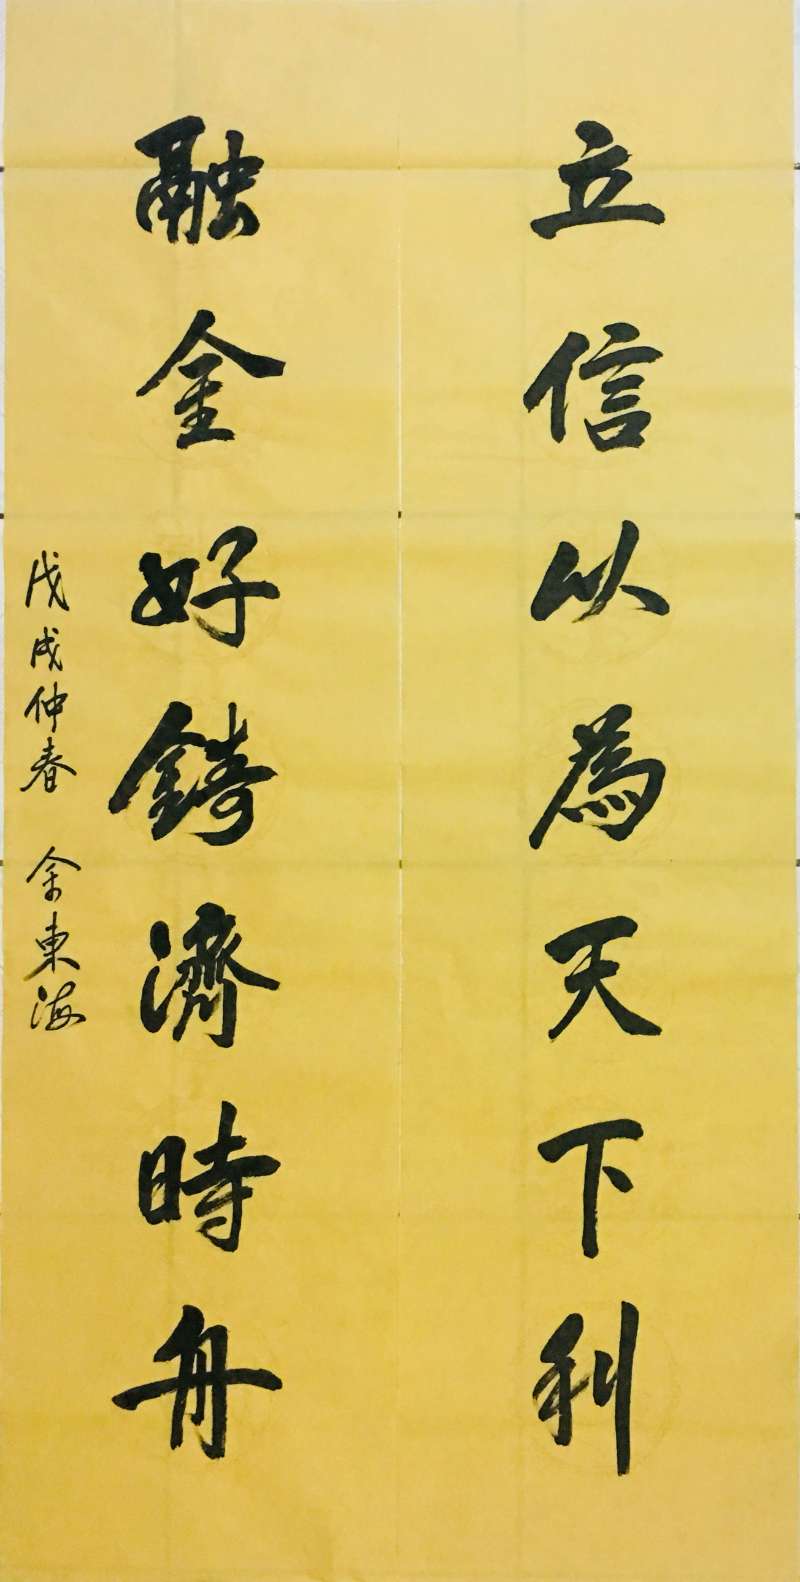 立信以為天下利
融金好鑄濟時舟
戊戌仲春 余東海